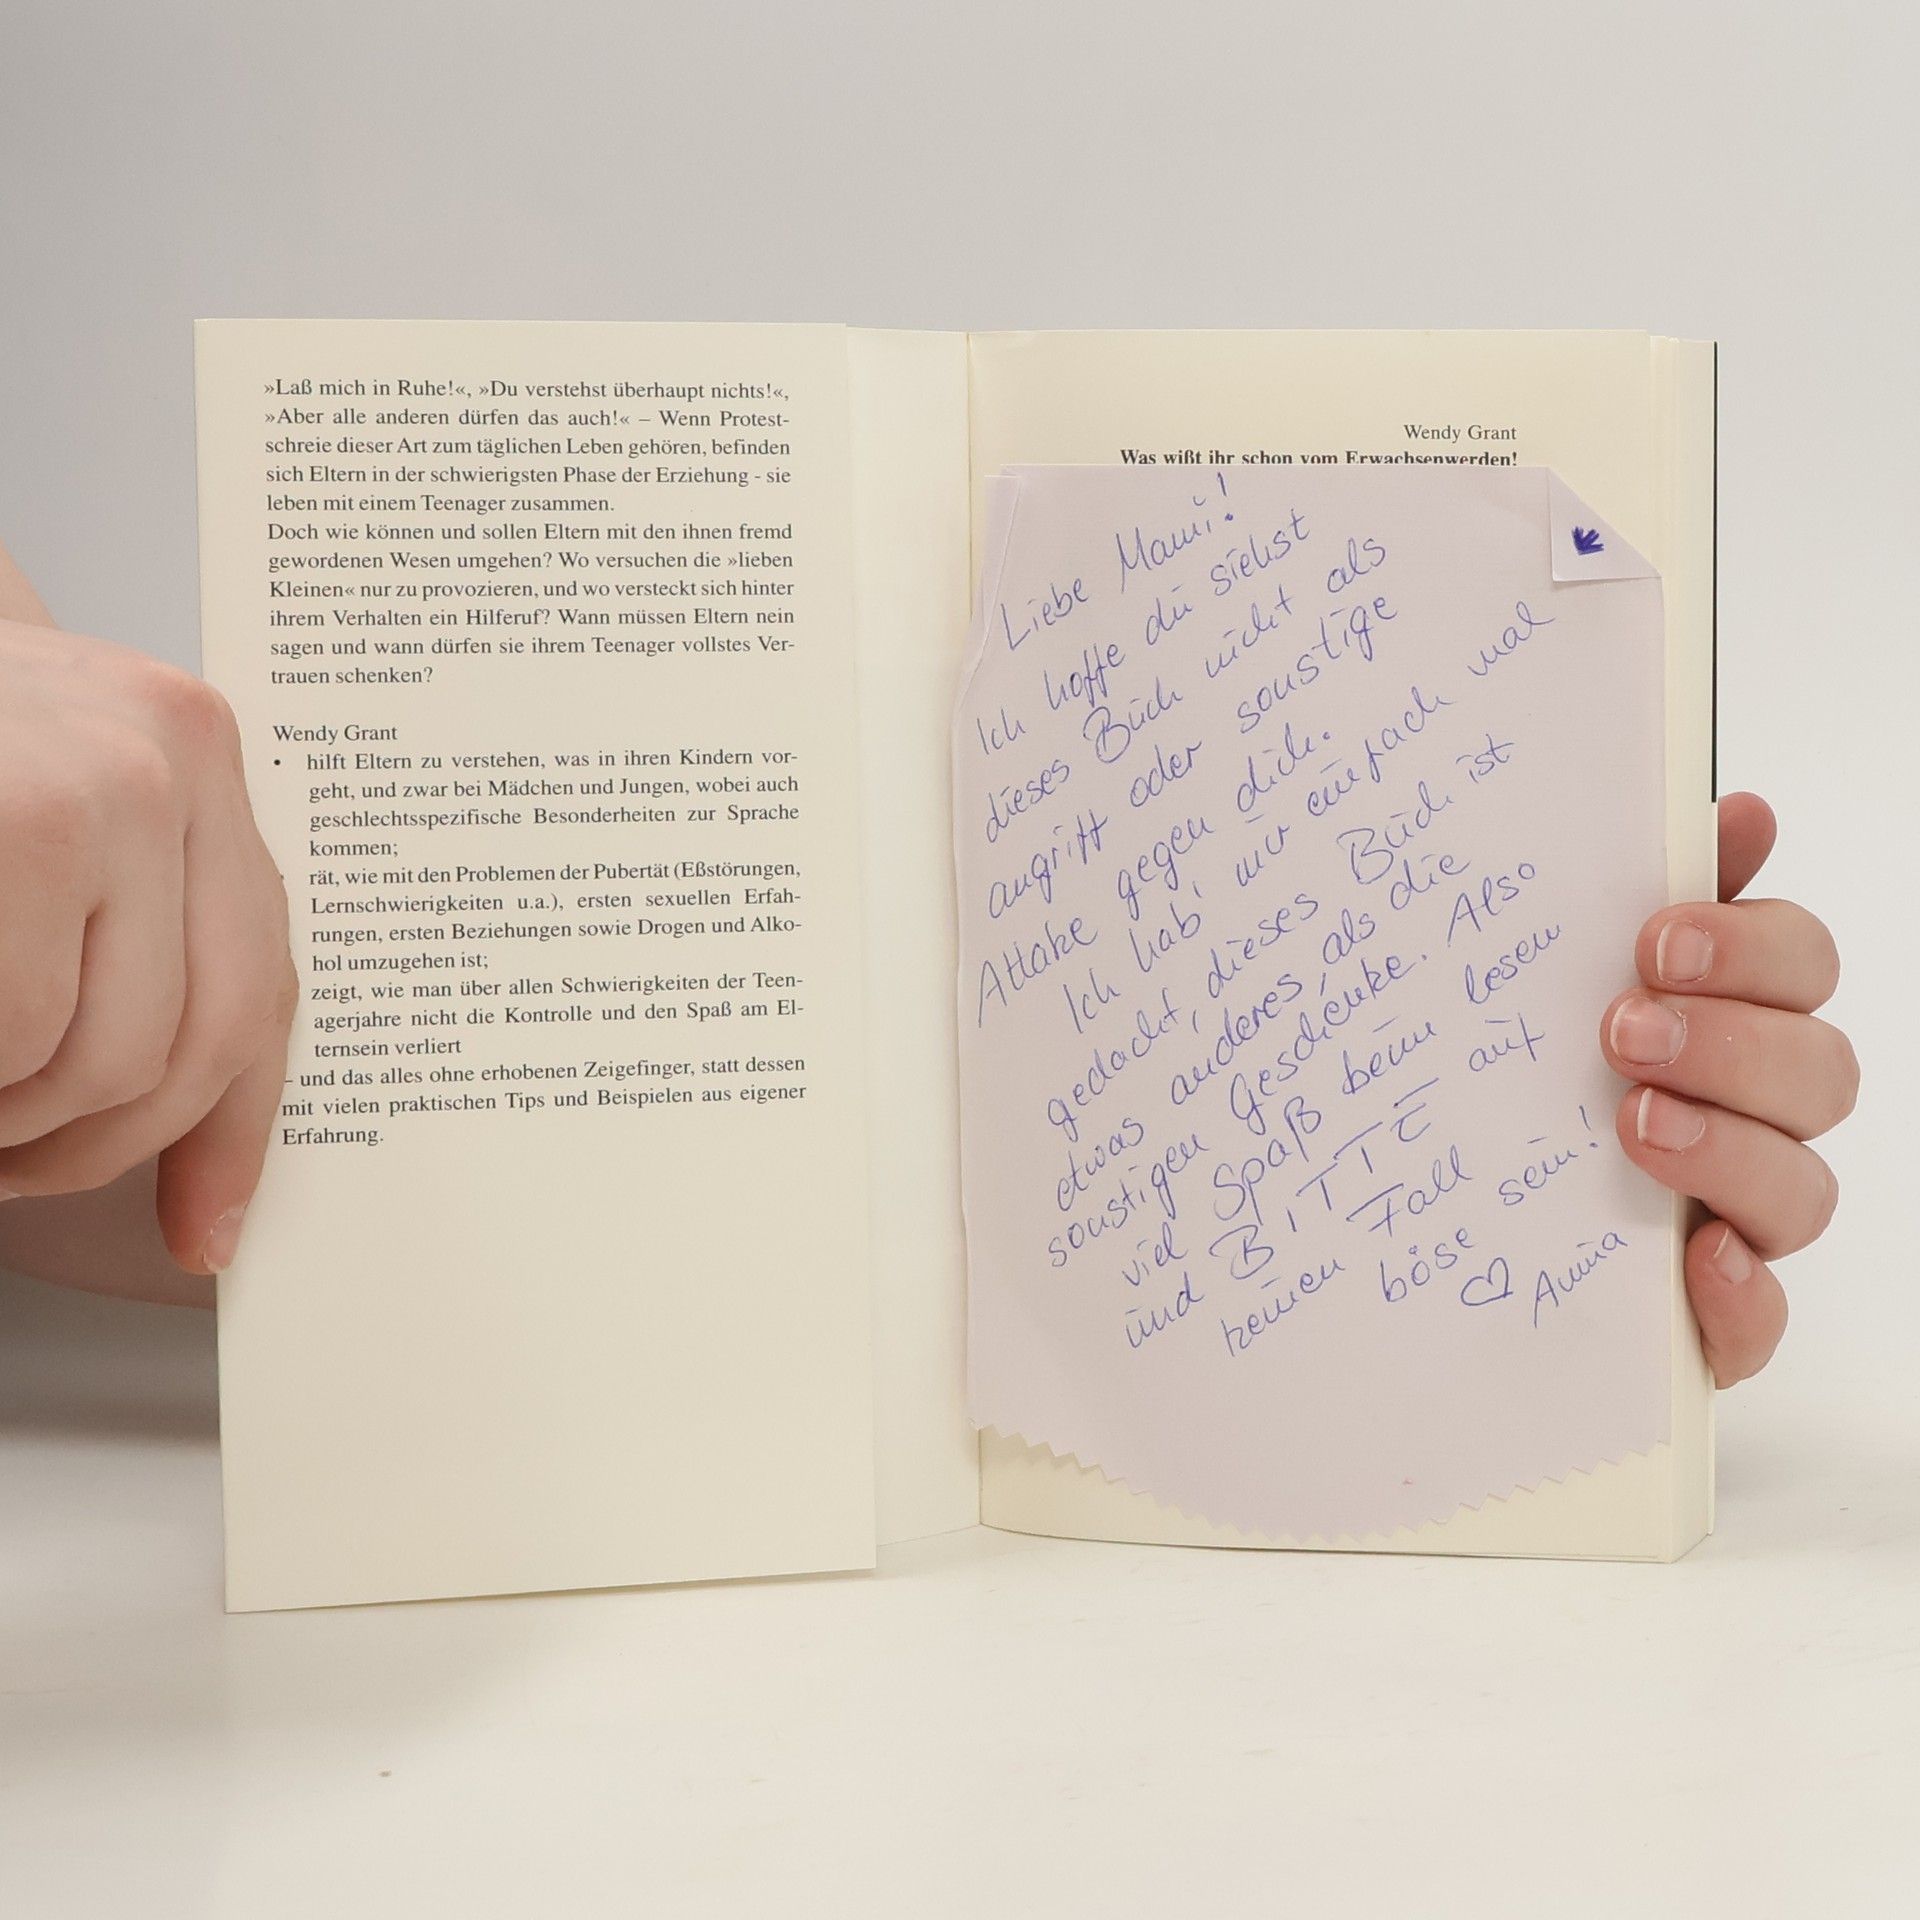 »Laß mich in Ruhe!«, »Du verstehst überhaupt nichts!«,
»Aber alle anderen dürfen das auch!« – Wenn Protest-
schreie dieser Art zum täglichen Leben gehören, befinden
sich Eltern in der schwierigsten Phase der Erziehung - sie
leben mit einem Teenager zusammen.
Doch wie können und sollen Eltern mit den ihnen fremd
gewordenen Wesen umgehen? Wo versuchen die »lieben
Kleinen« nur zu provozieren, und wo versteckt sich hinter
ihrem Verhalten ein Hilferuf? Wann müssen Eltern nein
sagen und wann dürfen sie ihrem Teenager vollstes Ver-
trauen schenken?
Wendy Grant
• hilft Eltern zu verstehen, was in ihren Kindern vor-
geht, und zwar bei Mädchen und Jungen, wobei auch
geschlechtsspezifische Besonderheiten zur Sprache
kommen;
rät, wie mit den Problemen der Pubertät (Eßstörungen,
Lernschwierigkeiten u.a.), ersten sexuellen Erfah-
rungen, ersten Beziehungen sowie Drogen und Alko-
hol umzugehen ist;
zeigt, wie man über allen Schwierigkeiten der Teen-
agerjahre nicht die Kontrolle und den Spaß am El-
ternsein verliert
– und das alles ohne erhobenen Zeigefinger, statt dessen
mit vielen praktischen Tips und Beispielen aus eigener
Erfahrung.
Wendy Grant
Was wißt ihr schon vom Erwachsenwerden!
Liebe Mami!
Ich hoffe du siehst
dieses Buch nicht als
angriff oder sonstige
Attake gegen dich.
Ich hab' mir einfach mal
gedacht, dieses Buch ist
etwas anderes, als die
sonstigen Geschenke. Also
viel Spaß beim lesen
und BITTE auf
keinen Fall
böse sein!
♡ Anna